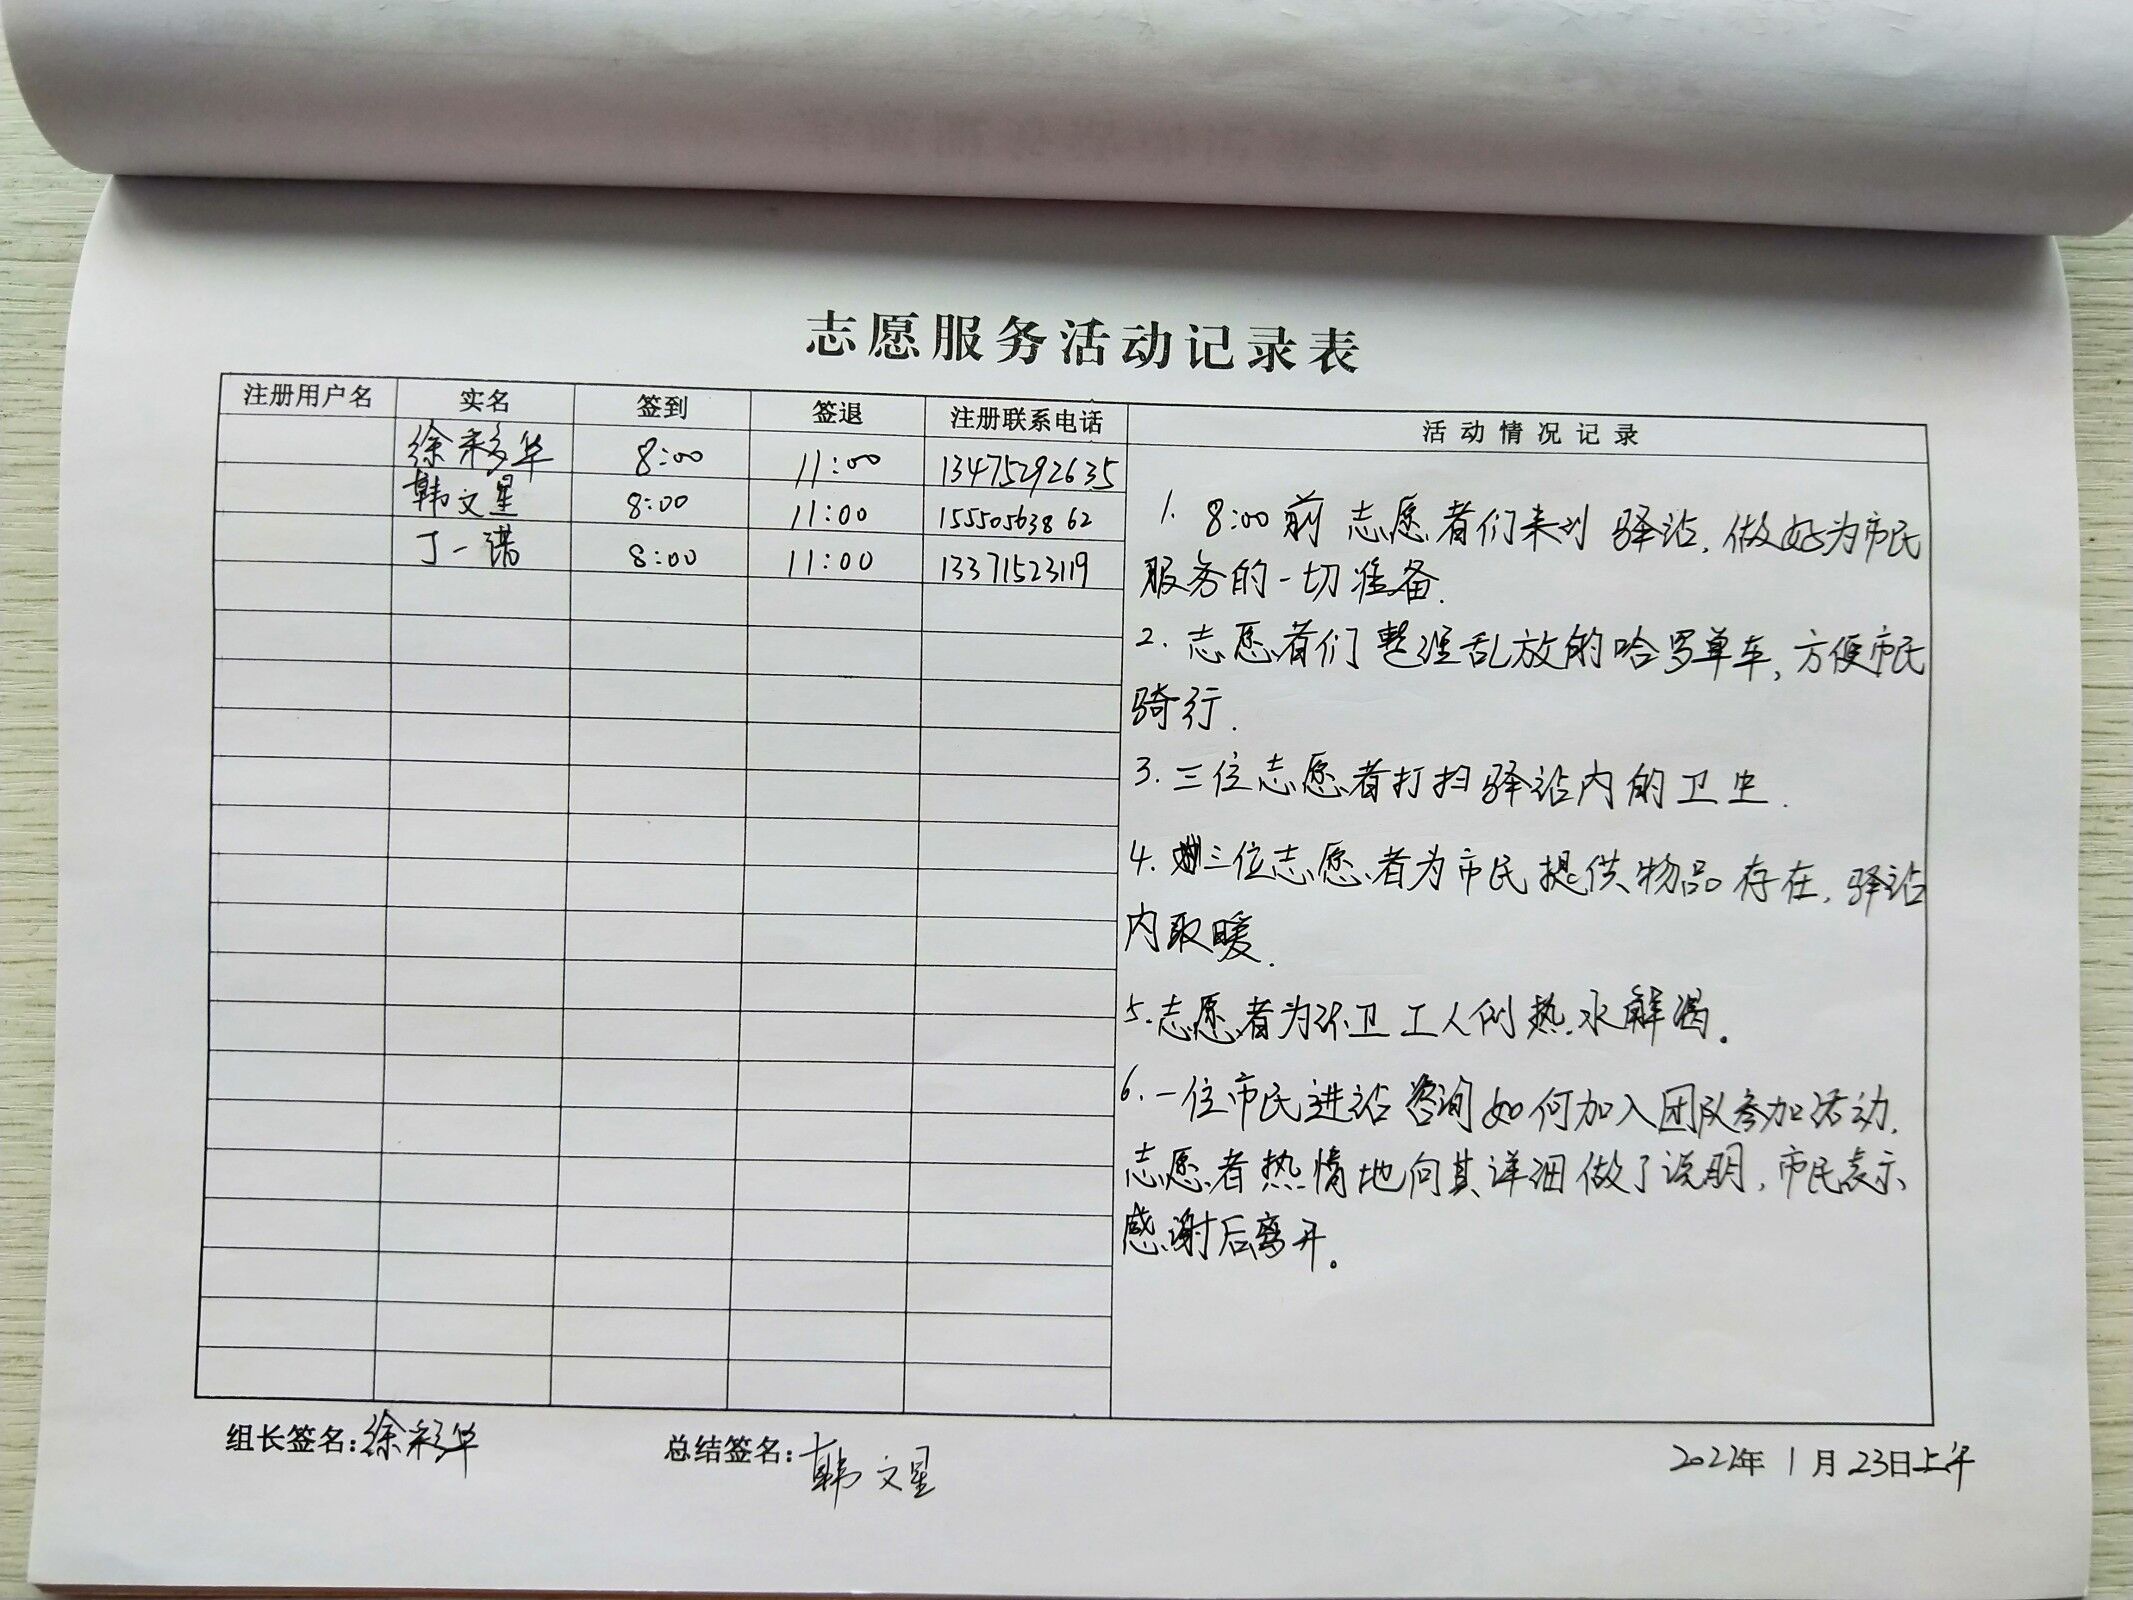 志愿服务活动记录表
注册用户名 实名 签到 签退 注册联系电话 活动情况记录
徐彩华 8:00 11:00 13475292635
韩文星 8:00 11:00 15550563862
丁一诺 8:00 11:00 13371523119
1. 8:00前 志愿者们来到 驿站, 做好为市民
服务的一切准备.
2. 志愿者们 整理乱放的哈罗单车, 方便市民
骑行.
3. 三位志愿者打扫驿站内的卫生.
4. 三位志愿者为市民提供物品存在, 驿站
内取暖.
5. 志愿者为环卫工人倒热水解渴。
6. 一位市民进站咨询如何加入团队参加活动,
志愿者热情地向其详细做了说明, 市民表示
感谢后离开。
组长签名:徐彩华 总结签名:韩文星 2022年1月23日上午